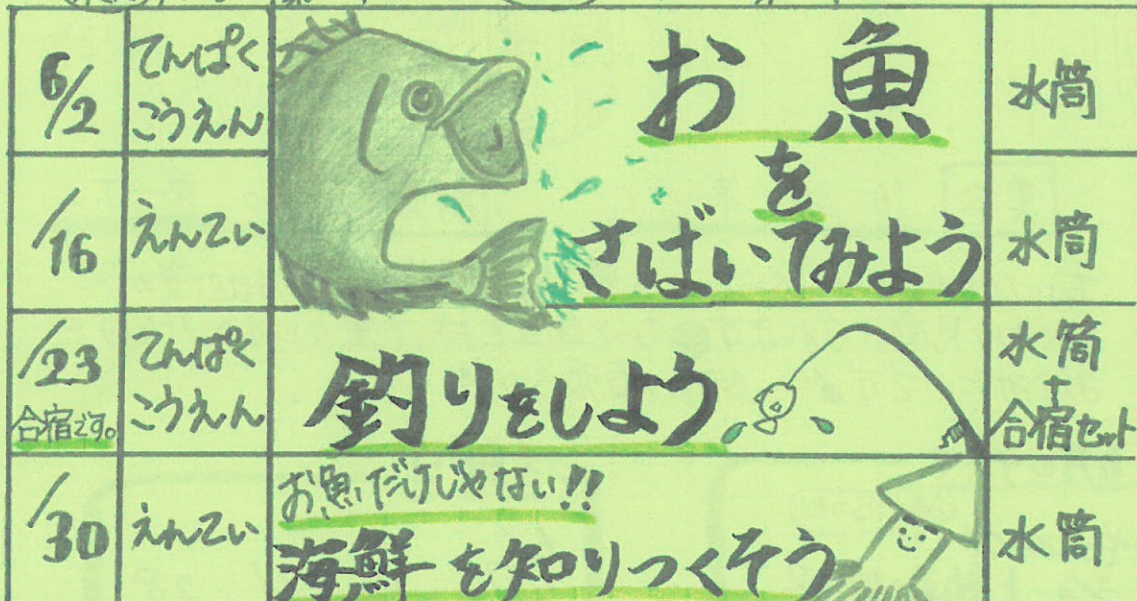 6/2
てんぱく
こうえん
お魚
を
さばいてみよう
水筒
/16
えんてい
水筒
/23
合宿です。
てんぱく
こうえん
釣りをしよう
水筒
+
合宿セット
/30
えんてい
お魚だけじゃない!!
海鮮を知りつくそう
水筒